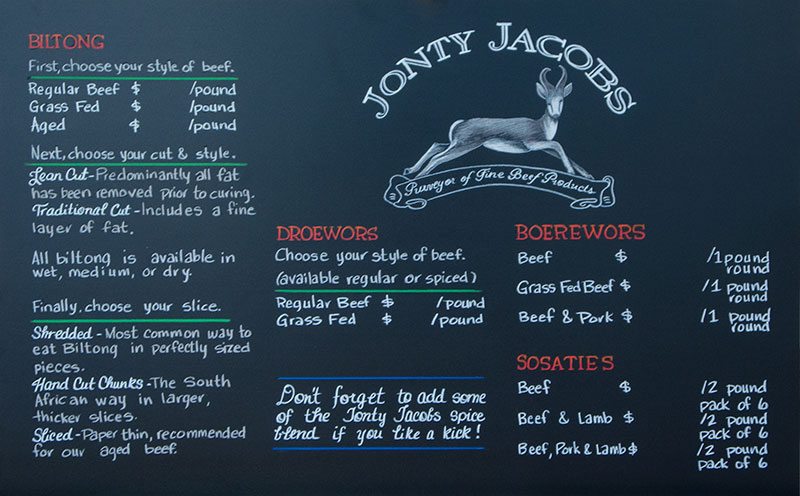 JONTY JACOBS
Purveyor of Fine Beef Products
BILTONG
First, choose your style of beef.
Regular Beef $ /pound
Grass Fed $ /pound
Aged $ /pound
Next, choose your cut & style.
Lean Cut - Predominantly all fat
has been removed prior to curing.
Traditional Cut - Includes a fine
layer of fat.
All biltong is available in
wet, medium, or dry.
Finally, choose your slice.
Shredded - Most common way to
eat Biltong in perfectly sized
pieces.
Hand Cut Chunks - The South
African way in larger,
thicker slices.
Sliced - Paper thin, recommended
for our aged beef.
DROEWORS
Choose your style of beef.
(available regular or spiced)
Regular Beef $ /pound
Grass Fed $ /pound
Don't forget to add some
of the Jonty Jacobs spice
blend if you like a kick!
BOEREWORS
Beef $ /1 pound
round
Grass Fed Beef $ /1 pound
round
Beef & Pork $ /1 pound
round
SOSATIES
Beef $ /2 pound
pack of 6
Beef & Lamb $ /2 pound
pack of 6
Beef, Pork & Lamb $ /2 pound
pack of 6